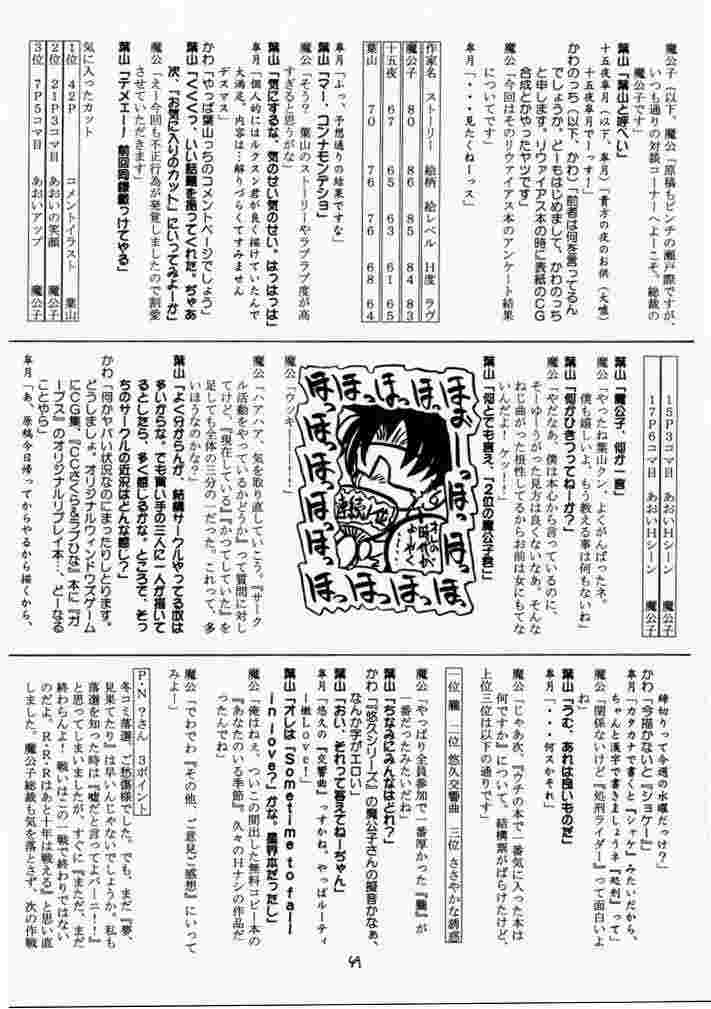 魔公子（以下、魔公）「原稿もピンチの瀬戸際ですが、
いつも通りの対談コーナーへよーこそ。総裁の
魔公子です」
葉山「葉山と呼べい」
十五夜皐月（以下、皐月）「貴方の夜のお供（大嘘）
十五夜皐月でーっす！」
かわのっち（以下、かわ）「前者は何を言ってるん
でしょうか。どーもはじめまして、かわのっち
と申します。リヴァイアス本の時に表紙のCG
合成とかやったヤツです」
魔公「今回はそのリヴァイアス本のアンケート結果
についてです」
皐月「・・・見たくねーっス」
作家名　ストーリー　絵柄　絵レベル　H度　ラヴ
魔公子　80　86　85　84　83
十五夜　67　65　63　61　65
葉山　70　76　76　68　64
皐月「ふっ、予想通りの結果ですな」
葉山「マー、コンナモンデショ」
魔公「そう？　葉山のストーリーやラブラブ度が高
すぎると思うがな」
葉山「気にするな、気のせい気のせい。はっはっは」
皐月「個人的にはルクスン君が良く描けていたんで
大満足。内容は…解りづらくてすみません
デスマス」
かわ「やっぱ葉山っちのコメントページでしょう」
葉山「くくくっ、いい話題を振ってくれた。ぢゃあ
次、『お気に入りのカット』にいってみよーか」
魔公「え！今回も不正行為が発覚しましたので割愛
させていただきます」
葉山「テメェー！　前回同様載っけてやる」
気に入ったカット
1位　42P　コメントイラスト　葉山
2位　21P3コマ目　あおいの笑顔　魔公子
3位　7P5コマ目　あおいアップ　魔公子
15P3コマ目　あおいHシーン　魔公子
17P6コマ目　あおいHシーン　魔公子
葉山「魔公子、何か一言」
魔公「やったね葉山クン、よくがんばったネ。
僕も嬉しいよ、もう教える事は何もないね」
葉山「何かひきつってねーか？」
魔公「やだなあ、僕は本心から言っているのに、
そーゆーうがった見方は良くないなあ。そんな
ねじ曲がった根性してるからお前は女にもてな
いんだよ！　ケッ！！」
葉山「何とでも言え、「2位の魔公子君」」
ほよーっほっほっ
ほっほっほっほっ
連続1位
魔公「ウッキーーー！」
魔公「ハアハア、気を取り直していこう。『サーク
ル活動をやっているかどうか』って質問に対し
てけど、『現在している』『かつてしていた』を
足しても全体の三分の一だった。これって、多
いほうなのかな？」
葉山「よく分からんが、結構サークルやってる奴は
多いからな。でも買い手の三人に一人が描いて
るとしたら、多く感じるかな。ところで、そっ
ちのサークルの近況はどんな感じ？」
かわ「何かヤバい状況なのにまったりしとります。
どうしましょ、オリジナルウィンドウズゲーム
にCG集、『CCさくら＆ラブひな』本に『ガ
ープス』のオリジナルリプレイ本…、どーなる
ことやら」
皐月「あ、原稿今日帰ってからやるから描くから、
締切りって今週の水曜だっけ？」
かわ「今描かないと『ショケー』」
皐月「カタカナで書くと『シャケ』みたいだから、
ちゃんと漢字で書きましょうネ『処刑』って」
魔公「関係ないけど『処刑ライダー』って面白いよ
ね」
葉山「うむ、あれは良いものだ」
皐月「・・・何スかそれ」
魔公「じゃあ次。『ウチの本で一番気に入った本は
何ですか』について。結構票がばらけたけど、
上位三位は以下の通りです」
一位　朧　二位　悠久交響曲　三位　ささやかな誘惑
魔公「やっぱり全員参加で一番厚かった『朧』が
一番だったみたいだね」
葉山「ちなみにみんなはどれ？」
かわ「『悠久シリーズ』の魔公子さんの擬音かなぁ、
なんか字がエロい」
葉山「おい、それって答えてねーぢゃん」
皐月「悠久の『交響曲』っすかね。やっぱルーティ
ー嬢Love！」
葉山「オレは『Sometime to fall
in love？』かな。星界本だったし」
魔公「俺はねえ、ついこの間出した無料コピー本の
『あなたのいる季節』。久々のHナシの作品だ
ったんでね」
魔公「でわでわ『その他、ご意見ご感想』にいって
みよー」
P・N？さん　3ポイント
冬コミ落選、ご愁傷様でした。でも、まだ『夢、
見果てたり』は早いんじゃないでしょうか。私も
落選を知った時は『嘘だと言ってよバーニィ！』
と思ってしまいましたが、すぐに『まただ、まだ
終わらんよ！　戦いはこの一戦で終わりではない
のだよ。R・R・Rはあと十年は戦える』と思い直
しました。魔公子総裁も気を落とさず、次の作戦